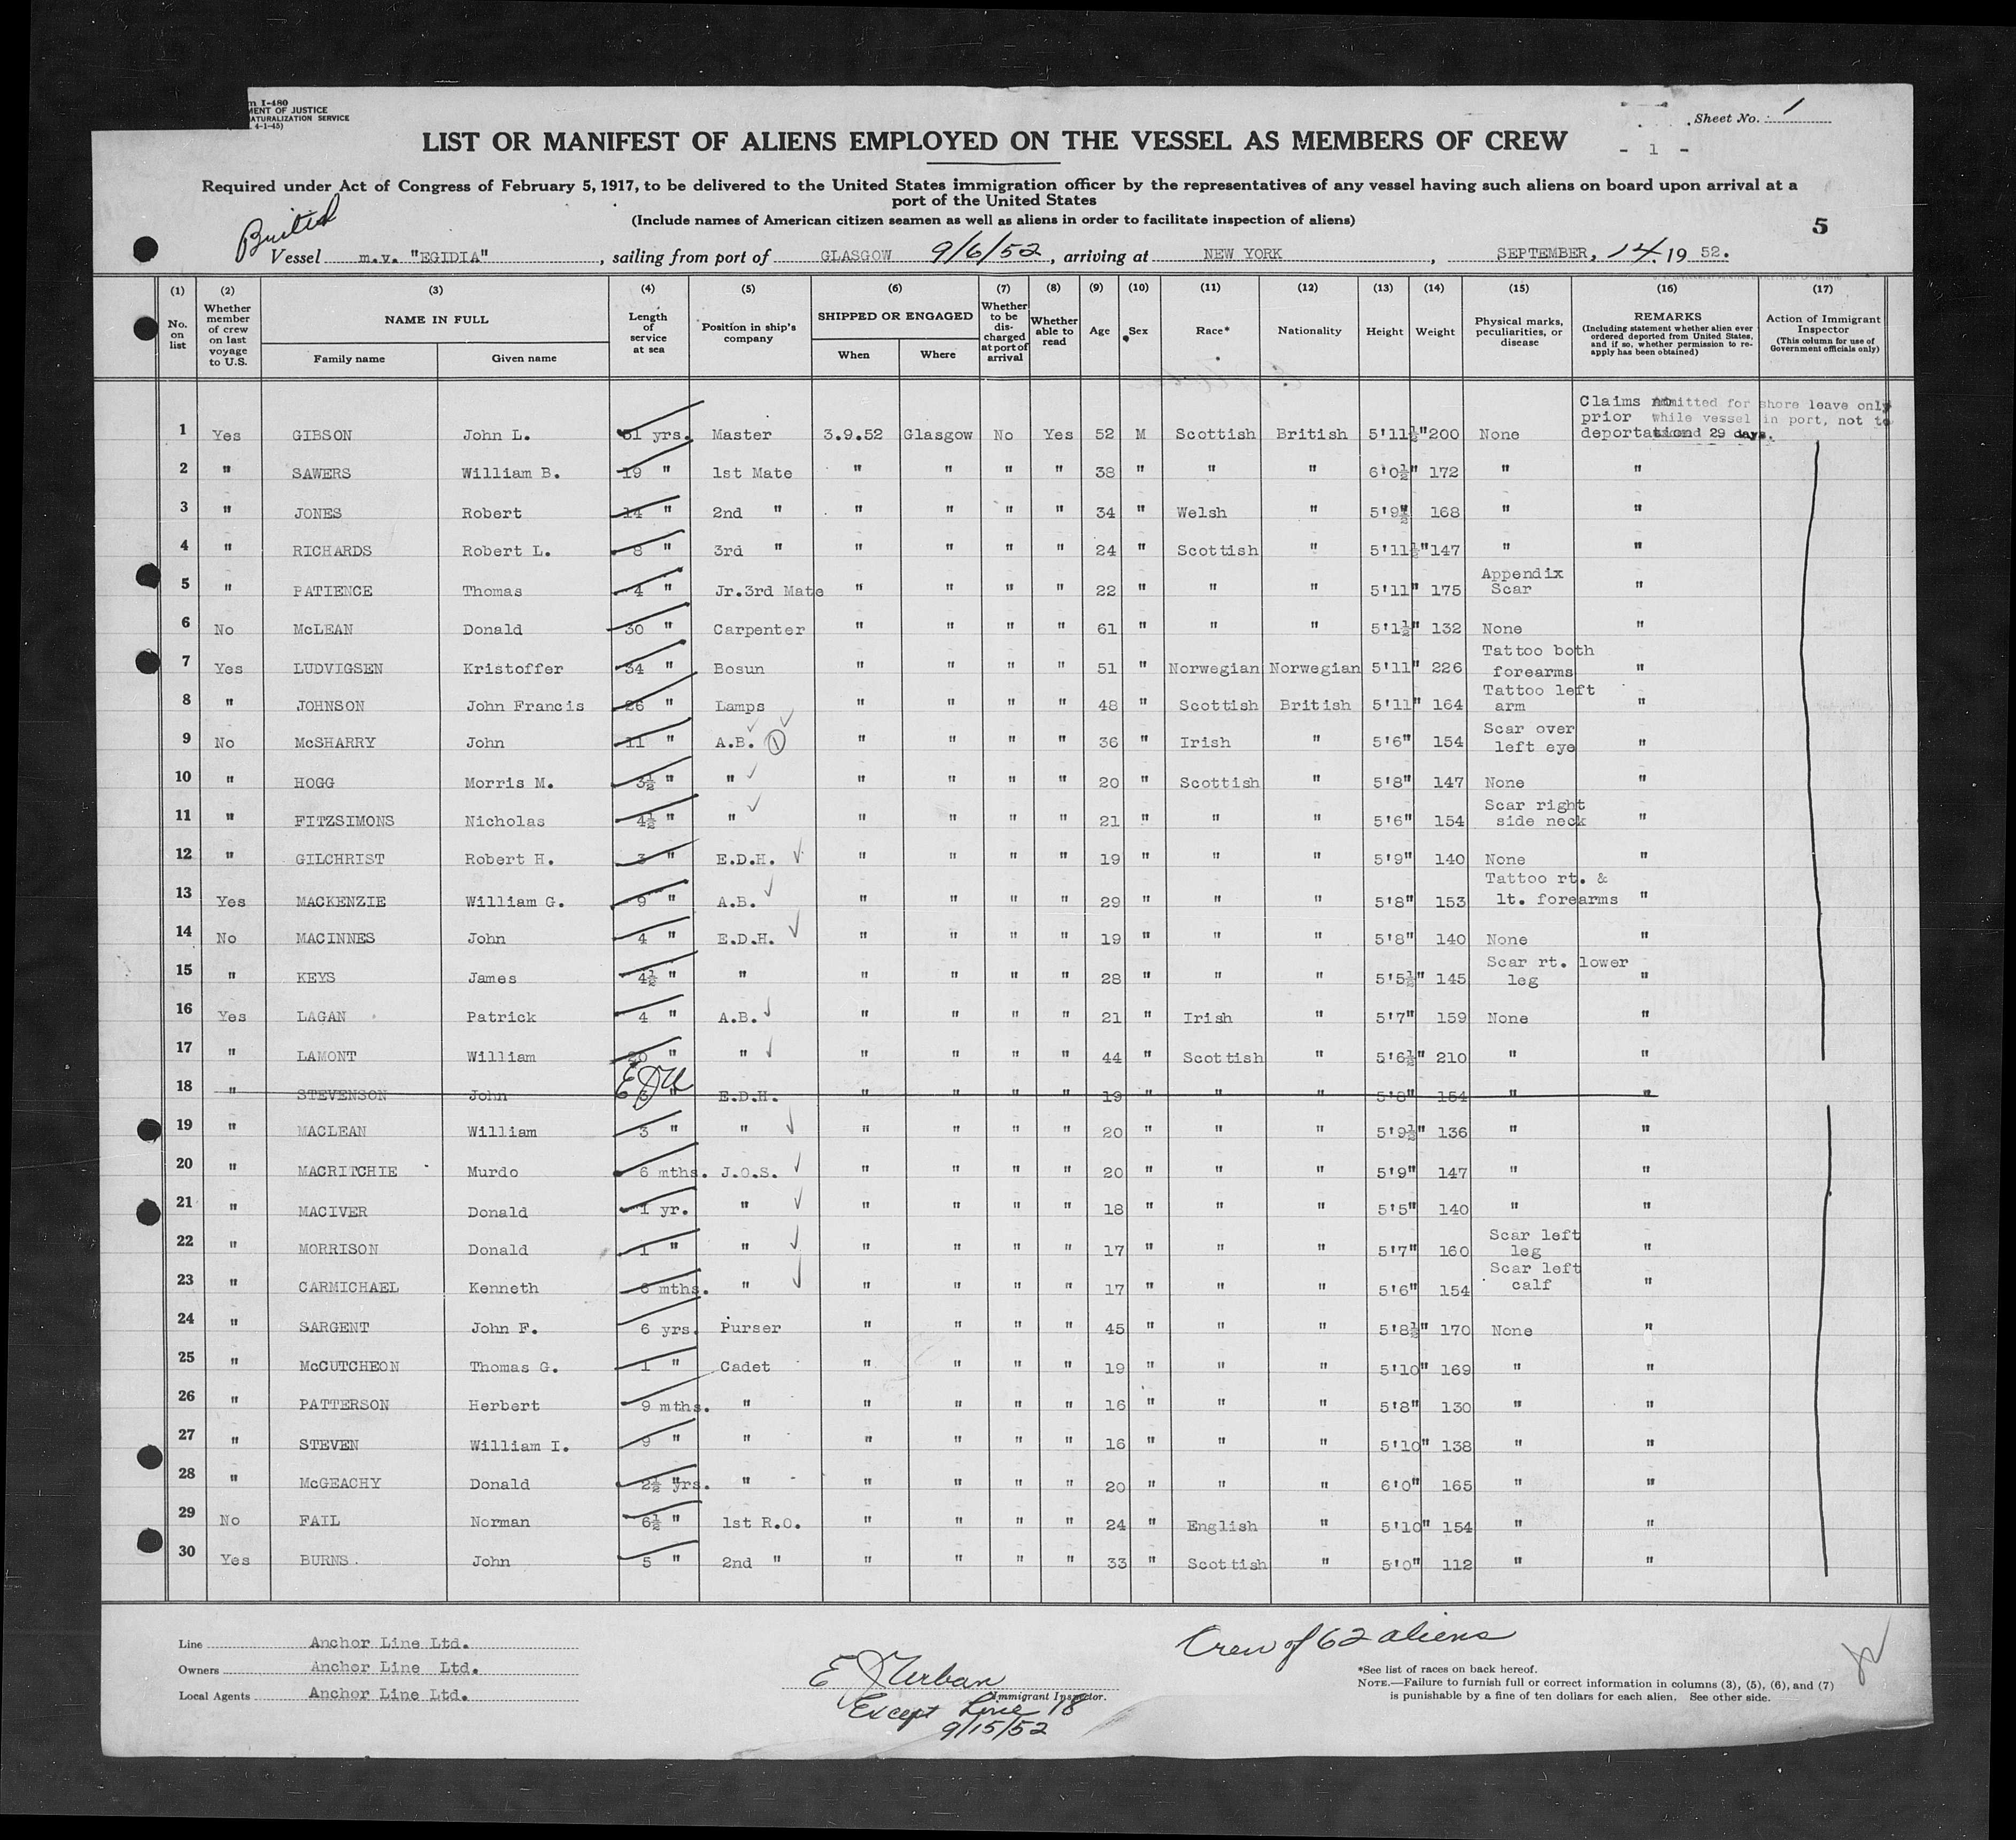 m I-480
MENT OF JUSTICE
NATURALIZATION SERVICE
4-1-45)
Sheet No. 1
LIST OR MANIFEST OF ALIENS EMPLOYED ON THE VESSEL AS MEMBERS OF CREW
- 1 -
Required under Act of Congress of February 5, 1917, to be delivered to the United States immigration officer by the representatives of any vessel having such aliens on board upon arrival at a
port of the United States
(Include names of American citizen seamen as well as aliens in order to facilitate inspection of aliens)
5
British
Vessel m.v. "EGIDIA", sailing from port of GLASGOW 9/6/52, arriving at NEW YORK, SEPTEMBER, 14. 19 52.
(1) (2) (3) (4) (5) (6) (7) (8) (9) (10) (11) (12) (13) (14) (15) (16) (17)
No. on list
Whether member of crew on last voyage to U.S.
NAME IN FULL
Family name
Given name
Length of service at sea
Position in ship's company
SHIPPED OR ENGAGED
When
Where
Whether to be discharged at port of arrival
Whether able to read
Age
Sex
Race*
Nationality
Height
Weight
Physical marks, peculiarities, or disease
REMARKS
(Including statement whether alien ever ordered deported from United States, and if so, whether permission to reapply has been obtained)
Action of Immigrant Inspector
(This column for use of Government officials only)
Claims no
prior
deportation
Admitted for shore leave only
while vessel in port, not to
exceed 29 days.
1 Yes GIBSON John L. 31 yrs. Master 3.9.52 Glasgow No Yes 52 M Scottish British 5'11½" 200 None
2 " SAWERS William B. 19 " 1st Mate " " " " 38 " " " 6'0½" 172 " "
3 " JONES Robert 14 " 2nd " " " " " 34 " Welsh " 5'9½" 168 " "
4 " RICHARDS Robert L. 8 " 3rd " " " " " 24 " Scottish " 5'11½" 147 " "
5 " PATIENCE Thomas 4 " Jr.3rd Mate " " " " 22 " " " 5'11" 175 Appendix Scar "
6 No McLEAN Donald 30 " Carpenter " " " " 61 " " " 5'1½" 132 None "
7 Yes LUDVIGSEN Kristoffer 34 " Bosun " " " " 51 " Norwegian Norwegian 5'11" 226 Tattoo both forearms "
8 " JOHNSON John Francis 26 " Lamps " " " " 48 " Scottish British 5'11" 164 Tattoo left arm "
9 No McSHARRY John 11 " A.B. 1 " " " " 36 " Irish " 5'6" 154 Scar over left eye "
10 " HOGG Morris M. 3½ " " " " " " 20 " Scottish " 5'8" 147 None "
11 " FITZSIMONS Nicholas 4½ " " " " " " 21 " " " 5'6" 154 Scar right side neck "
12 " GILCHRIST Robert H. 3 " E.D.H. " " " " 19 " " " 5'9" 140 None "
13 Yes MACKENZIE William G. 9 " A.B. " " " " 29 " " " 5'8" 153 Tattoo rt. & lt. forearms "
14 No MACINNES John 4 " E.D.H. " " " " 19 " " " 5'8" 140 None "
15 " KEYS James 4½ " " " " " " 28 " " " 5'5½" 145 Scar rt. lower leg "
16 Yes LAGAN Patrick 4 " A.B. " " " " 21 " Irish " 5'7" 159 None "
17 " LAMONT William 20 " " " " " " 44 " Scottish " 5'6½" 210 " "
18 " STEVENSON John 3 " E.D.H. " " " " 19 " " " 5'8" 154 " "
19 " MACLEAN William 3 " " " " " " 20 " " " 5'9½" 136 " "
20 " MACRITCHIE Murdo 6 mths. J.O.S. " " " " 20 " " " 5'9" 147 " "
21 " MACIVER Donald 1 yr. " " " " " 18 " " " 5'5" 140 " "
22 " MORRISON Donald 1 " " " " " " 17 " " " 5'7" 160 Scar left leg "
23 " CARMICHAEL Kenneth 6 mths. " " " " " 17 " " " 5'6" 154 Scar left calf "
24 " SARGENT John F. 6 yrs. Purser " " " " 45 " " " 5'8½" 170 None "
25 " McCUTCHEON Thomas G. 1 " Cadet " " " " 19 " " " 5'10" 169 " "
26 " PATTERSON Herbert 9 mths. " " " " " 16 " " " 5'8" 130 " "
27 " STEVEN William I. 9 " " " " " " 16 " " " 5'10" 138 " "
28 " McGEACHY Donald 2½ yrs. " " " " " 20 " " " 6'0" 165 " "
29 No FAIL Norman 6½ " 1st R.O. " " " " 24 " English " 5'10" 154 " "
30 Yes BURNS John 5 " 2nd " " " " " 33 " Scottish " 5'0" 112 " "
Line Anchor Line Ltd.
Owners Anchor Line Ltd.
Local Agents Anchor Line Ltd.
E J Urban
Immigrant Inspector.
Except Line 18
9/15/52
Crew of 62 aliens
*See list of races on back hereof.
NOTE.—Failure to furnish full or correct information in columns (3), (5), (6), and (7)
is punishable by a fine of ten dollars for each alien. See other side.